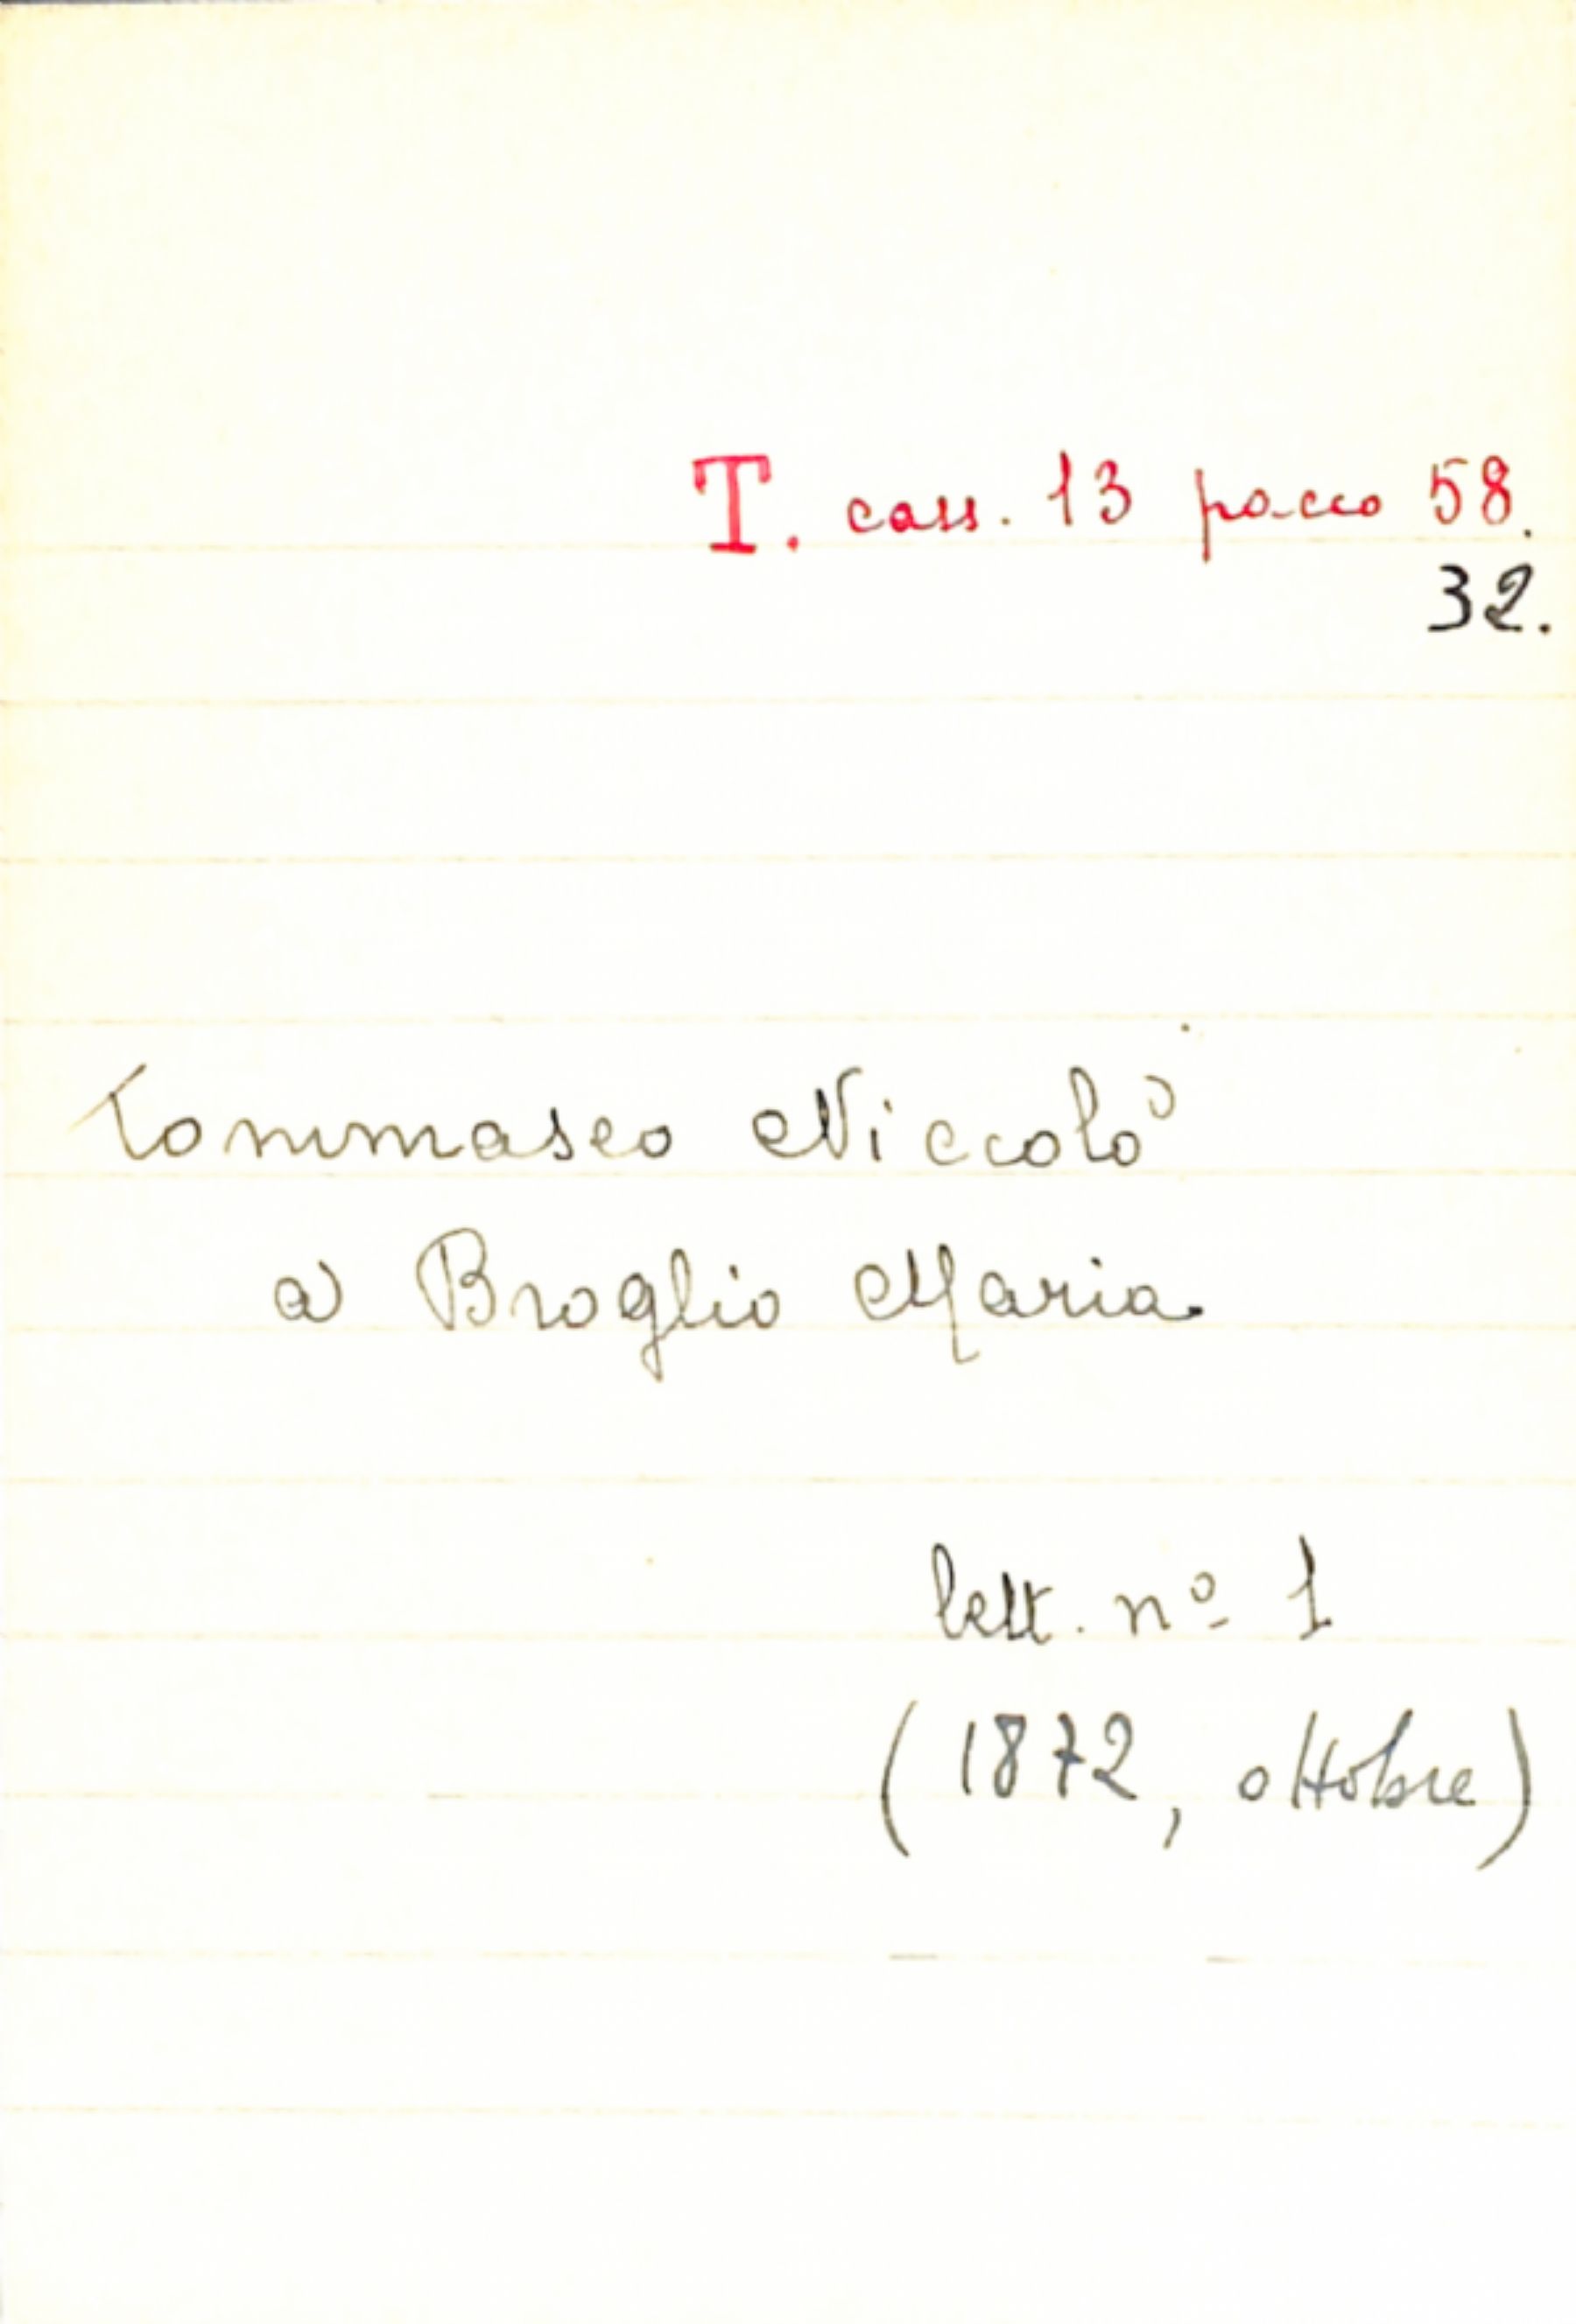 T. cass. 13 pacco 58.
32.
Tommaseo Niccolò
a Broglio Maria
lett. nº 1
(1872, ottobre)